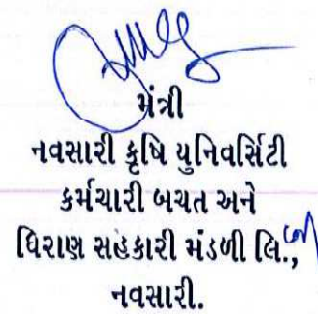 મંત્રી
નવસારી કૃષિ યુનિવર્સિટી
કર્મચારી બચત અને
ધિરાણ સહકારી મંડળી લિ.,
નવસારી.